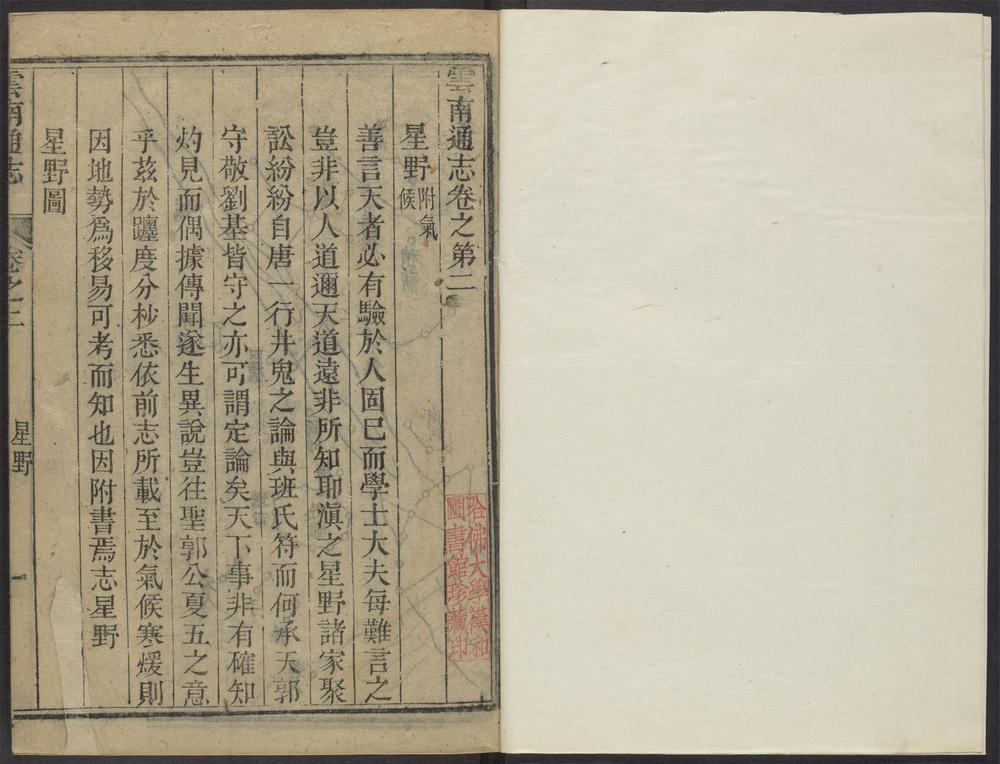 雲南通志卷之第二
星野附氣候
善言天者必有驗於人固巳而學士大夫每難言之
豈非以人道邇天道遠非所知耶滇之星野諸家聚
訟紛紛自唐一行井鬼之論與班氏符而何承天郭
守敬劉基皆守之亦可謂定論矣天下事非有確知
灼見而偶據傳聞遂生異說豈往聖郭公夏五之意
乎茲於躔度分杪悉依前志所載至於氣候寒煖則
因地勢爲移易可考而知也因附書焉志星野
星野圖
雲南通志
卷之二
星野
一
哈佛大學漢和
圖書館珍藏印